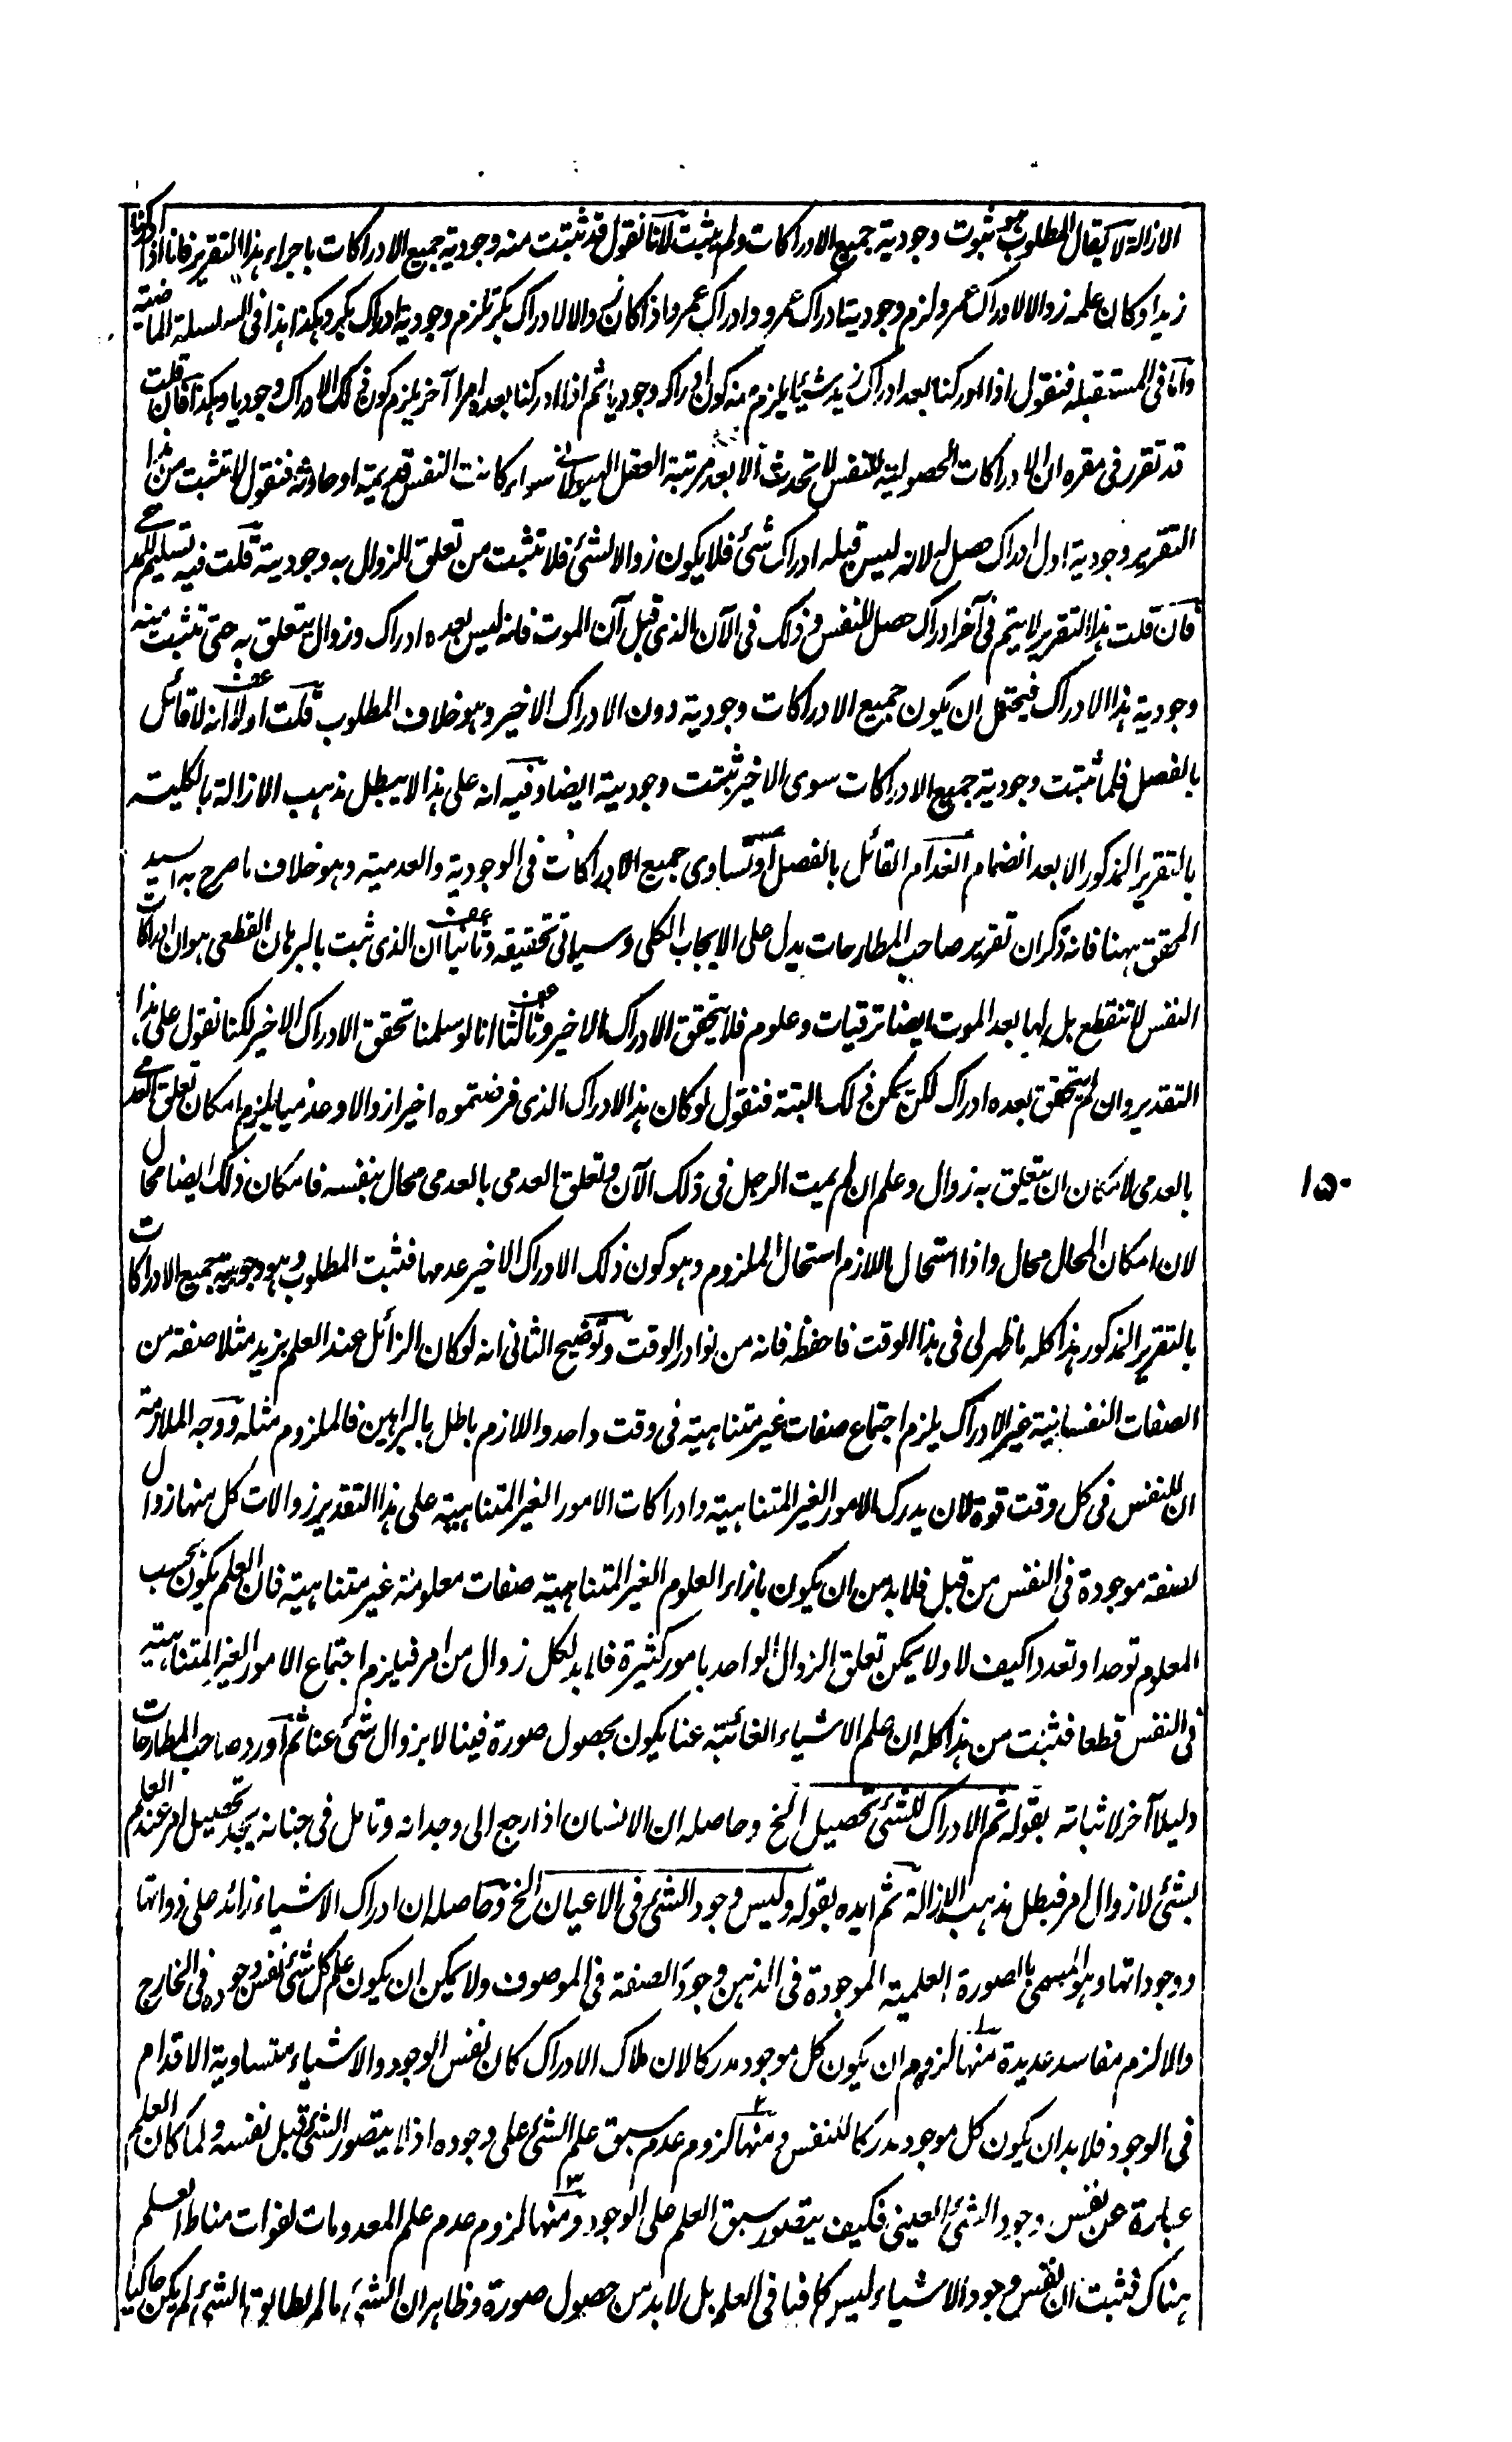 الازالة لا يقال المطلوب هو ثبوت وجودية جميع الادراكات ولم يثبت لانا نقول قد ثبتت منه وجودية جميع الادراكات باجراء هذا التقرير فانا اذا ادركنا
زيدا وكان علمه زوالا لادراك عمرو لزم وجودية ادراك عمرو وادراك عمرو اذا كان زوالا لادراك بكر تلزم وجودية ادراك بكر وهكذا هذا فى السلسلة الماضية
واما فى المستقبلة فنقول اذا ادركنا بعد ادراك زيد شيئا يلزم منه كون ادراكه وجوديا ثم اذا ادركنا بعده امرا آخر يلزم كون ذلك الادراك وجوديا وهكذا فان قلت
قد تقرر فى مقره ان الادراكات الحصولية للنفس لا تحدث الا بعد مرتبة العقل الهيولانى سواء كانت النفس قديمة او حادثة فنقول لا تثبت من هذا
التقرير وجودية اول ادراك حصل له لانه ليس قبله ادراك شئ فلا يكون زوالا لشئ فلا تثبت من تعلق الزوال به وجودية قلت فيه تسليم للمدعى
فان قلت هذا التقرير لا يتم فى آخر ادراك حصل للنفس وذلك فى الآن الذى قبل آن الموت فانه ليس بعده ادراك وزوال يتعلق به حتى تثبت منه
وجودية هذا الادراك فيحتمل ان يكون جميع الادراكات وجودية دون الادراك الاخير وهو خلاف المطلوب قلت اولا انه لا قائل
بالفصل فلما ثبتت وجودية جميع الادراكات سوى الاخير ثبتت وجوديته ايضا وفيه انه على هذا لا يبطل مذهب الازالة بالكلية
بالتقرير المذكور الا بعد انضمام انعدام القائل بالفصل او تساوى جميع الادراكات فى الوجودية والعدمية وهو خلاف ما صرح به السيد
المحقق ههنا فانه ذكر ان تقرير صاحب المطارحات يدل على الايجاب الكلى وسياتى تحقيقه وثانيا ان الذى ثبت بالبرهان القطعى هو ان ادراكات
النفس لا تنقطع بل لها بعد الموت ايضا ترقيات وعلوم فلا يتحقق الادراك الاخير وثالثا انا لو سلمنا تحقق الادراك الاخير لكنا نقول على هذا
التقدير وان لم يتحقق بعده ادراك لكن يمكن ذلك البتة فنقول لو كان هذا الادراك الذى فرضتموه اخيرا زوالا وعدميا يلزم امكان تعلق العدمى
بالعدمى لامكان ان يتعلق به زوال وعلم ان لم يمت الرجل فى ذلك الآن وتعلق العدمى بالعدمى محال بنفسه فامكان ذلك ايضا محال
لان امكان المحال محال واذا استحال اللازم استحال الملزوم وهو كون ذلك الادراك الاخير عدمها فثبت المطلوب وهو وجودية جميع الادراكات
بالتقرير المذكور هذا كله ما ظهر لى فى هذا الوقت فاحفظه فانه من نوادر الوقت وتوضيح الثانى انه لو كان الزائل عند العلم بزيد مثلا صفة من
الصفات النفسانية غير الادراك يلزم اجتماع صفات غير متناهية فى وقت واحد واللازم باطل بالبراهين فالملزوم مثله ووجه الملازمة
ان للنفس فى كل وقت قوة لان يدرك الامور الغير المتناهية وادراكات الامور الغير المتناهية على هذا التقدير زوالات كل منها زوال
لصفة موجودة فى النفس من قبل فلا بد من ان يكون بازاء العلوم الغير المتناهية صفات معلومة غير متناهية فان العلم يكون بحسب
المعلوم توحدا وتعددا كيف لا ولا يمكن تعلق الزوال الواحد بامور كثيرة فلا بد لكل زوال من امر فيلزم اجتماع الامور الغير المتناهية
فى النفس قطعا فثبت من هذا كله ان علم الاشياء الغائبة عنا يكون بحصول صورة فينا لا بزوال شئ عنا ثم اورد صاحب المطارحات
دليلا آخر لاثباته بقوله ثم الادراك للشئ تحصيل الخ وحاصله ان الانسان اذا رجع الى وجدانه وتامل فى جنانه يجد تحصيل امر عند العلم
بشئ لا زوال امر فبطل مذهب الازالة ثم ايده بقوله وليس وجود الشئ فى الاعيان الخ وحاصله ان ادراك الاشياء زائد على ذواتها
ووجوداتها وهو المسمى بالصورة العلمية الموجودة فى الذهن وجود الصفة فى الموصوف ولا يمكن ان يكون علم كل شئ نفس وجوده فى الخارج
والا لزم مفاسد عديدة منها لزوم ان يكون كل موجود مدركا لان ملاك الادراك كان نفس الوجود والاشياء متساوية الاقدام
فى الوجود فلا بد ان يكون كل موجود مدركا للنفس ومنها لزوم عدم سبق علم الشئ على وجوده اذ لا يتصور الشئ قبل نفسه ولما كان العلم
عبارة عن نفس وجود الشئ العينى فكيف يتصور سبق العلم على الوجود ومنها لزوم عدم علم المعدومات لفوات مناط العلم
هناك فثبت ان نفس وجود الاشياء ليس كافيا فى العلم بل لا بد من حصول صورة وظاهر ان الشئ ما لم يطابق الشئ لم يكن حاكيا
١٥٠